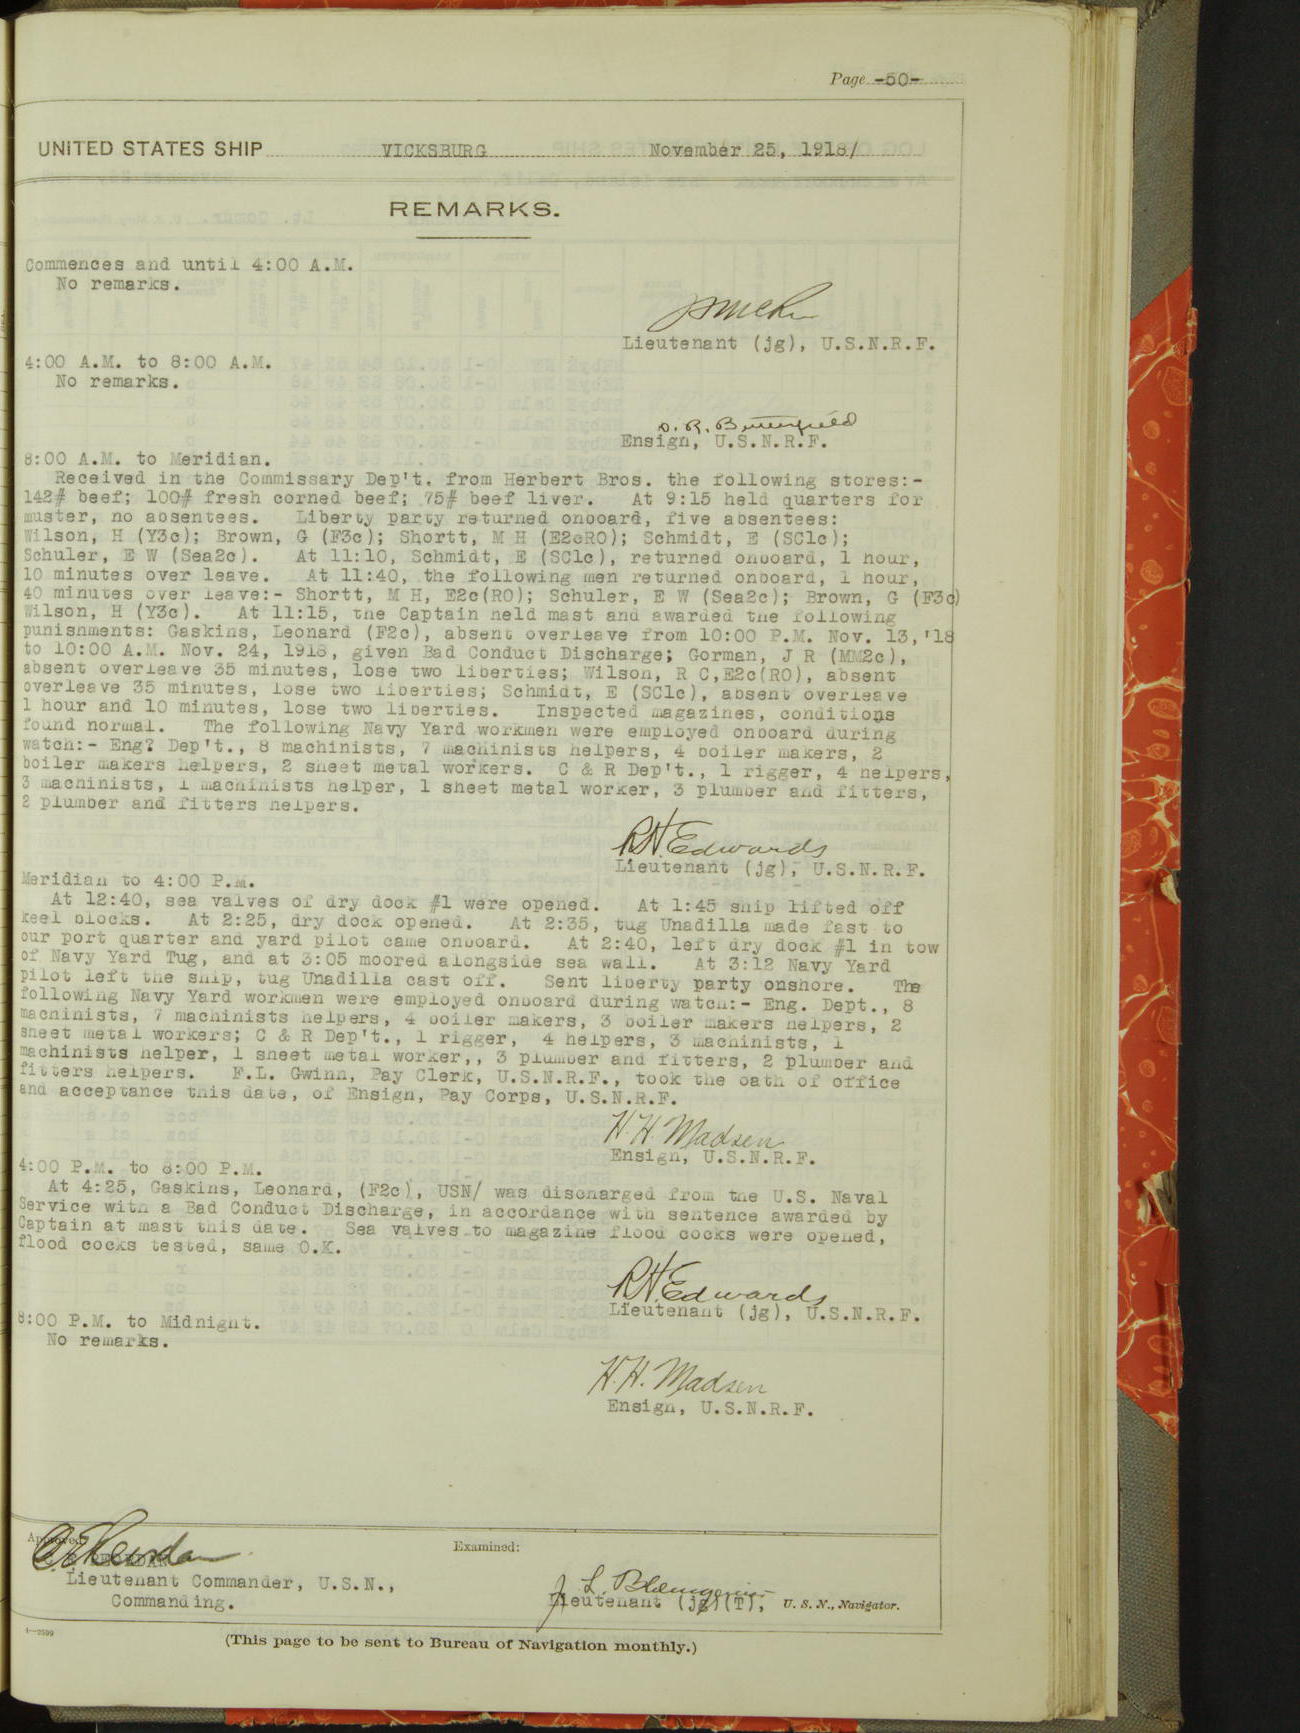 Page -50-
UNITED STATES SHIP VICKSBURG November 25, 1918/
REMARKS.
Commences and until 4:00 A.M.
No remarks.
Lieutenant (jg), U.S.N.R.F.
4:00 A.M. to 8:00 A.M.
No remarks.
O. R. Butterfield
Ensign, U.S.N.R.F.
8:00 A.M. to Meridian.
Received in the Commissary Dep't. from Herbert Bros. the following stores:-
142# beef; 100# fresh corned beef; 75# beef liver. At 9:15 held quarters for
muster, no absentees. Liberty party returned onboard, five absentees:
Wilson, H (Y3c); Brown, G (F3c); Shortt, M H (E2cRO); Schmidt, E (SC1c);
Schuler, E W (Sea2c). At 11:10, Schmidt, E (SC1c), returned onboard, 1 hour,
10 minutes over leave. At 11:40, the following men returned onboard, 1 hour,
40 minutes over leave:- Shortt, M H, E2c(RO); Schuler, E W (Sea2c); Brown, G (F3c)
Wilson, H (Y3c). At 11:15, the Captain held mast and awarded the following
punishments: Gaskins, Leonard (F2c), absent overleave from 10:00 P.M. Nov. 13,'18
to 10:00 A.M. Nov. 24, 1918, given Bad Conduct Discharge; Gorman, J R (MM2c),
absent overleave 35 minutes, lose two liberties; Wilson, R C,E2c(RO), absent
overleave 35 minutes, lose two liberties; Schmidt, E (SC1c), absent overleave
1 hour and 10 minutes, lose two liberties. Inspected magazines, conditions
found normal. The following Navy Yard workmen were employed onboard during
watch:- Eng? Dep't., 8 machinists, 7 machinists helpers, 4 boiler makers, 2
boiler makers helpers, 2 sheet metal workers. C & R Dep't., 1 rigger, 4 helpers,
3 machinists, 1 machinists helper, 1 sheet metal worker, 3 plumber and fitters,
2 plumber and fitters helpers.
R.H. Edwards
Lieutenant (jg), U.S.N.R.F.
Meridian to 4:00 P.M.
At 12:40, sea valves of dry dock #1 were opened. At 1:45 ship lifted off
keel blocks. At 2:25, dry dock opened. At 2:35, tug Unadilla made fast to
our port quarter and yard pilot came onboard. At 2:40, left dry dock #1 in tow
of Navy Yard Tug, and at 3:05 moored alongside sea wall. At 3:12 Navy Yard
pilot left the ship, tug Unadilla cast off. Sent liberty party onshore. The
following Navy Yard workmen were employed onboard during watch:- Eng. Dept., 8
machinists, 7 machinists helpers, 4 boiler makers, 3 boiler makers helpers, 2
sheet metal workers; C & R Dep't., 1 rigger, 4 helpers, 3 machinists, 1
machinists helper, 1 sheet metal worker,, 3 plumber and fitters, 2 plumber and
fitters helpers. F.L. Gwinn, Pay Clerk, U.S.N.R.F., took the oath of office
and acceptance this date, of Ensign, Pay Corps, U.S.N.R.F.
H.H. Madsen
Ensign, U.S.N.R.F.
4:00 P.M. to 8:00 P.M.
At 4:25, Gaskins, Leonard, (F2c), USN/ was discharged from the U.S. Naval
Service with a Bad Conduct Discharge, in accordance with sentence awarded by
Captain at mast this date. Sea valves to magazine flood cocks were opened,
flood cocks tested, same O.K.
R.H. Edwards
Lieutenant (jg), U.S.N.R.F.
8:00 P.M. to Midnight.
No remarks.
H.H. Madsen
Ensign, U.S.N.R.F.
Approved:
Examined:
Lieutenant Commander, U.S.N.,
Commanding.
Lieutenant (jg)(T), U. S. N., Navigator.
(This page to be sent to Bureau of Navigation monthly.)